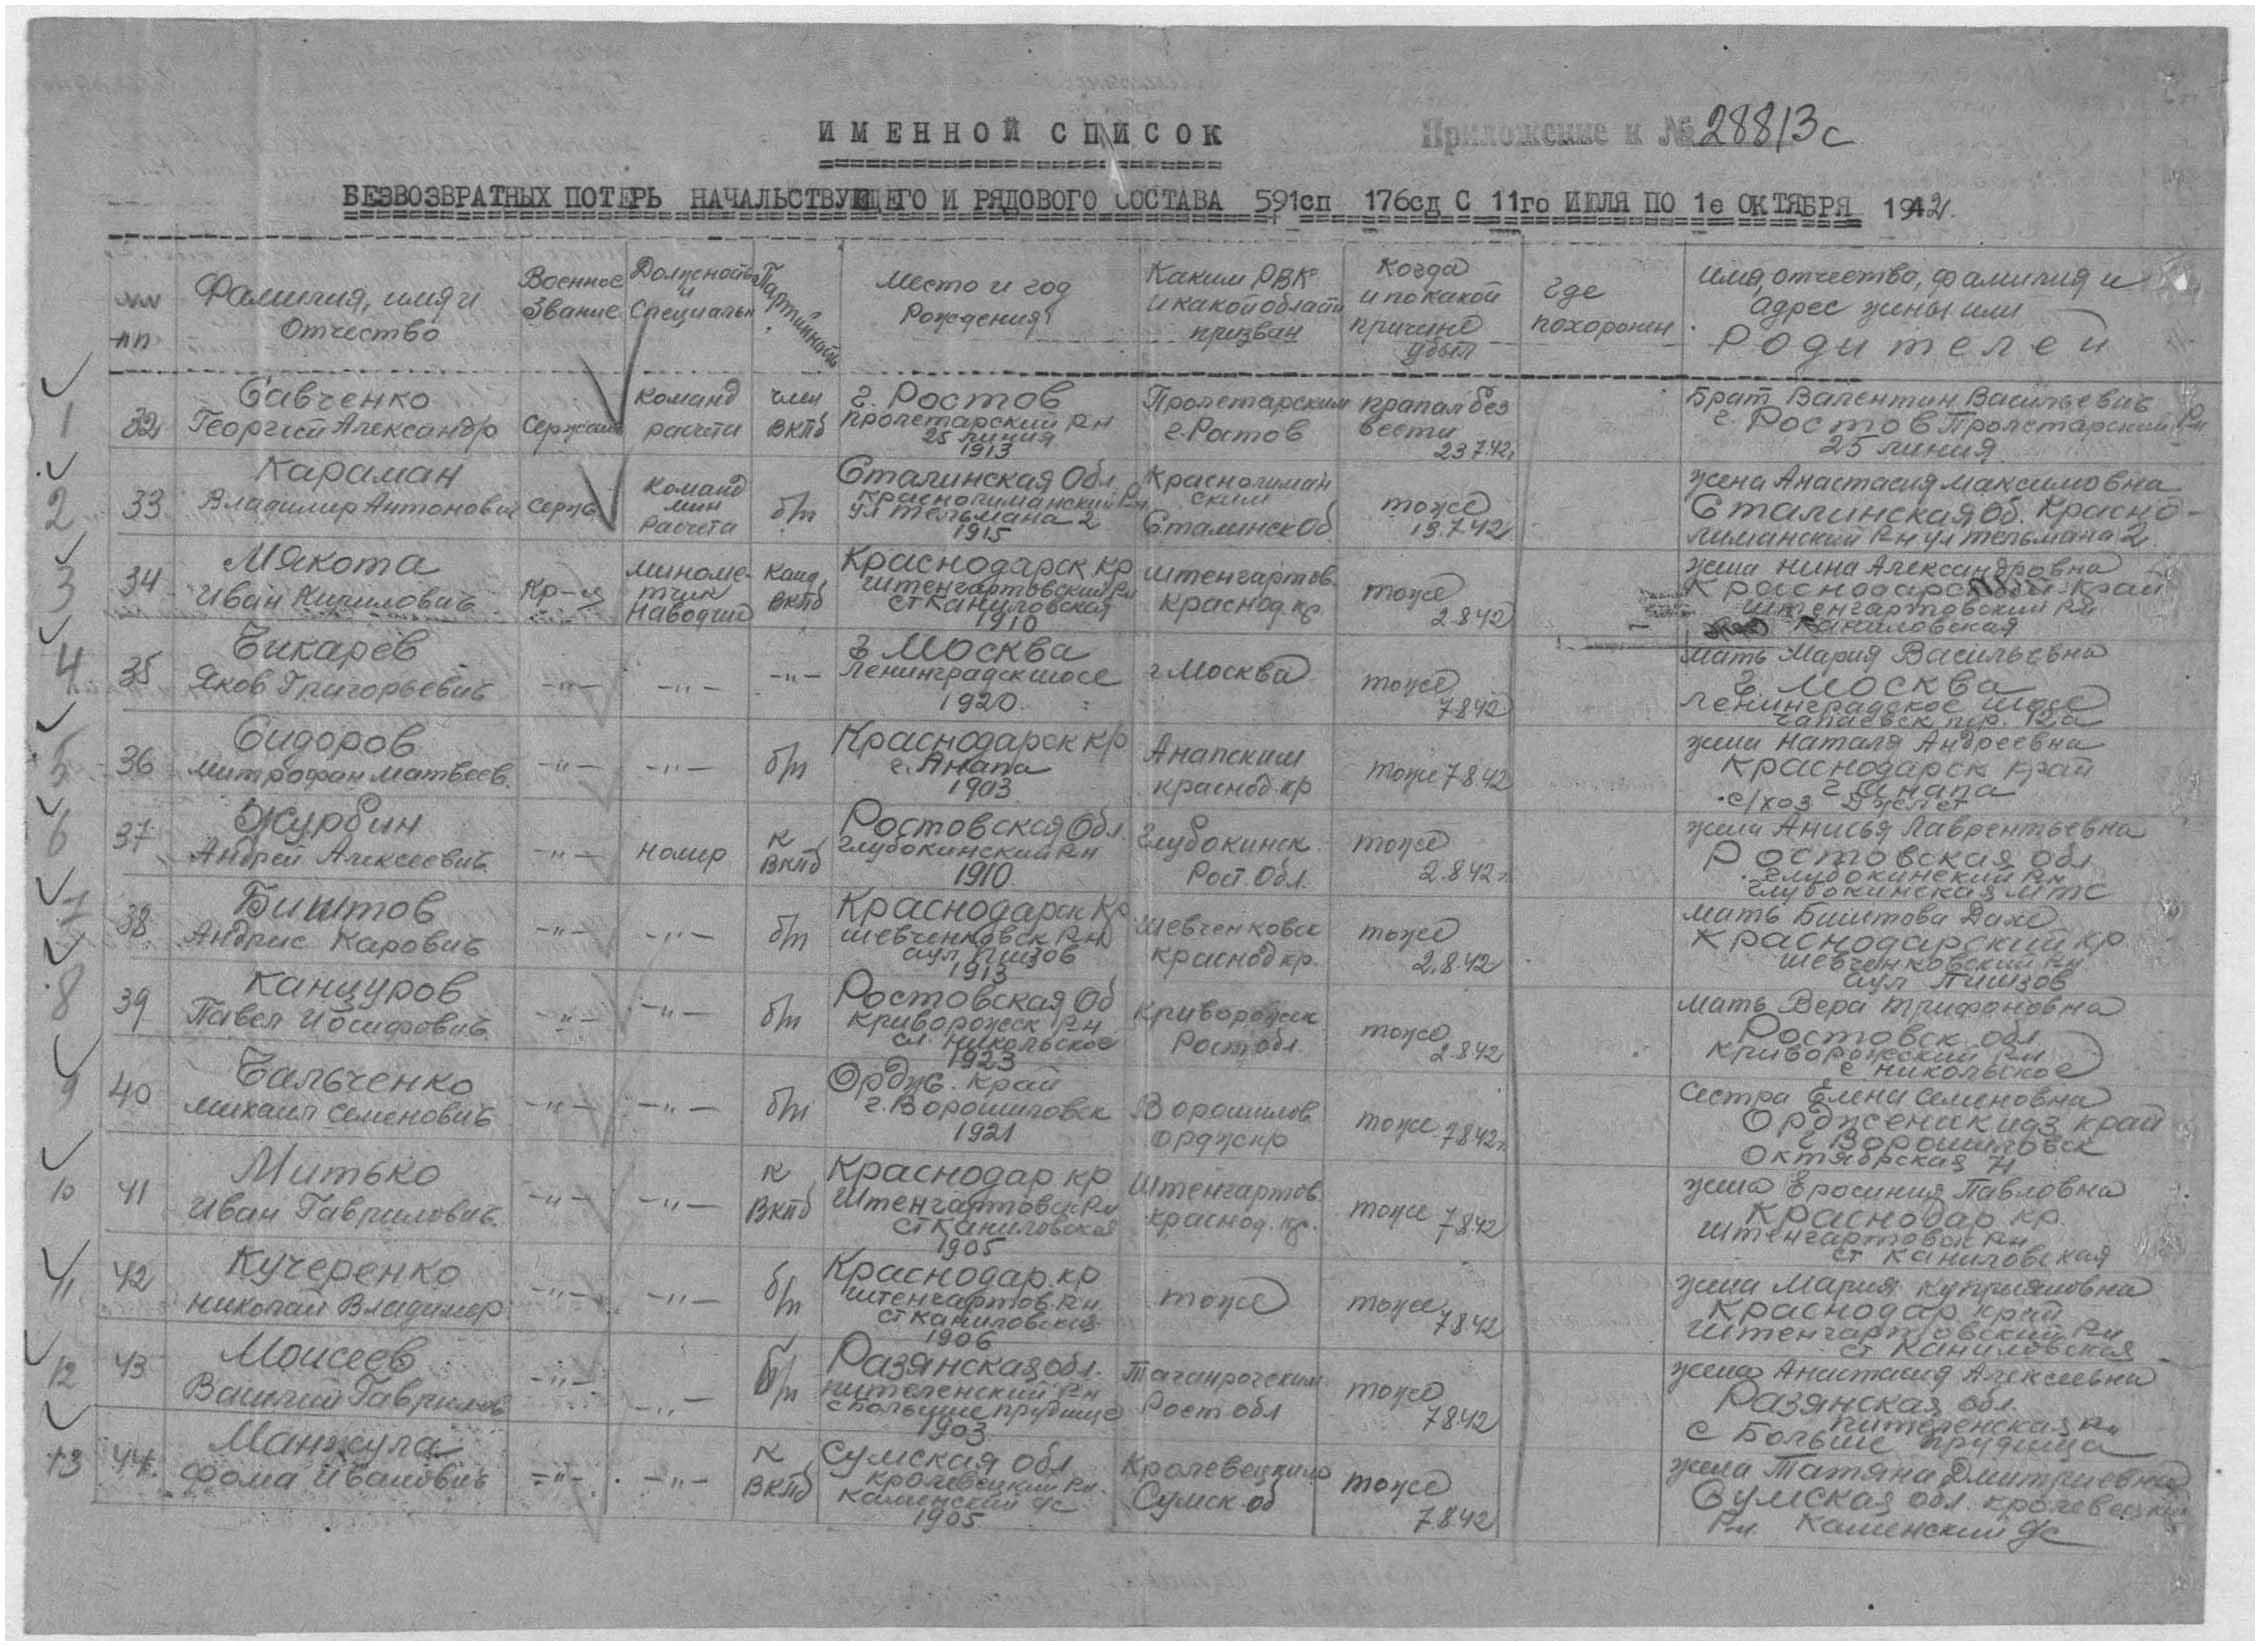 ИМЕННОЙ СПИСОК
Приложение к № 28813с
БЕЗВОЗВРАТНЫХ ПОТЕРЬ НАЧАЛЬСТВУЮЩЕГО И РЯДОВОГО СОСТАВА 591сп 176сд С 11го ИЮЛЯ ПО 1е ОКТЯБРЯ 1942
пп
Фамилия, имя и
Отчество
Военное
Звание
Должность
и
Специальн
Партийность
Место и год
Рождения
Каким РВК
и какой области
призван
Когда
и по какой
причине
убыл
Где
похоронен
имя, отчество, фамилия и
адрес жены или
Родителей
1
32
Савченко
Георгий Александр
Сержант
Команд
расчета
член
ВКПб
г. Ростов
пролетарский Рн
25 линия
1913
Пролетарским
г. Ростов
пропал без
вести
23.7.42г
Брат Валентин Васильевич
г. Ростов Пролетарский Рн
25 линия
2
33
Караман
Владимир Антонович
Серж
Команд
мин
Расчета
б/п
Сталинская Обл
Краснолиманский Рн
ул Тельмана 2
1915
Краснолиман
ским
Сталинск Об
тоже
19.7.42
жена Анастасия Максимовна
Сталинская Об. Красно-
лиманский Рн ул Тельмана 2
3
34
Мякота
Иван Кирилович
Кр-ц
миноме-
тчик
Наводчик
Канд
ВКПб
Краснодарск кр
Штенгартовский Рн
ст Каниловская
1910
Штенгартов
Краснод. кр.
тоже
2.8.42
жена Нина Александровна
Краснодарской Край
Штенгартовский Рн
Каниловская
4
35
Чикарев
Яков Григорьевич
-"-
-"-
-"-
г Москва
Ленинградск шосе
1920
г Москва
тоже
7.8.42
мать Мария Васильевна
г. Москва
Ленинградское шосе
Чапаевск пер. 12а
5
36
Сидоров
Митрофан Матвеев.
-"-
-"-
б/п
Краснодарск кр
г. Анапа
1903
Анапским
краснод. кр
тоже 7.8.42
жена Наталя Андреевна
Краснодарск край
г Анапа
с/хоз Джемет
6
37
Журбин
Андрей Алексеевич
-"-
номер
К
ВКПб
Ростовская Обл.
Глубокинский Рн
1910
Глубокинск
Рост. Обл.
тоже
2.8.42г
жена Анисья Лаврентьевна
Ростовская обл
Глубокинский Рн
Глубокинская МТС
7
38
Биштов
Андрис Карович
-"-
-"-
б/п
Краснодарск Кр
шевченковск Рн
аул Пшизов
1913
Шевченковск
краснод кр.
тоже
2.8.42
мать Биштова Дахе
Краснодарский кр
шевченковский Рн
аул Пшизов
8
39
Канцуров
Павел Иосифович
-"-
-"-
б/п
Ростовская Об
Криворожск Рн
сл. Никольское
1923
Криворожск
Рост обл.
тоже
2.8.42
мать Вера Трифоновна
Ростовск. обл
Криворожский Рн
с Никольское
9
40
Бальченко
Михаил Семенович
-"-
-"-
б/п
Ордж. край
г. Ворошиловск
1921
Ворошилов
орджкр
тоже 7.8.42г
Сестра Елена Семеновна
Орджоникидз край
г Ворошиловск
Октябрьская 71
10
41
Митько
Иван Гаврилович
-"-
-"-
К
ВКПб
Краснодар кр
Штенгартовск Рн
ст Каниловская
1905
Штенгартов
краснод. кр.
тоже 7.8.42
жена Ефросиния Павловна
Краснодар кр.
Штенгартовск Рн
ст Каниловская
11
42
Кучеренко
Николай Владимер
-"-
-"-
б/п
Краснодар. кр
Штенгартов. Рн
ст Каниловская
1906
тоже
тоже
7.8.42
жена Мария Куприяновна
Краснодар край
Штенгартовский Рн
ст Каниловская
12
43
Моисеев
Василий Гаврилов
-"-
-"-
б/п
Разянская обл.
пителенский Рн
с Большие прудище
1903
Таганрогским
Рост обл
тоже
7.8.42
жена Анастасия Алексеевна
Разянская обл.
пителенская Рн
с Больше прудища
13
44.
Манжула
Фома Иванович
-"-
-"-
К
ВКПб
Сумская обл
Кролевецкий Рн.
Каменский с/с
1905
Кролевецким
Сумск. об
тоже
7.8.42
жена Татяна Дмитриевна
Сумская обл. кролевецкий
Рн. Каменский с/с